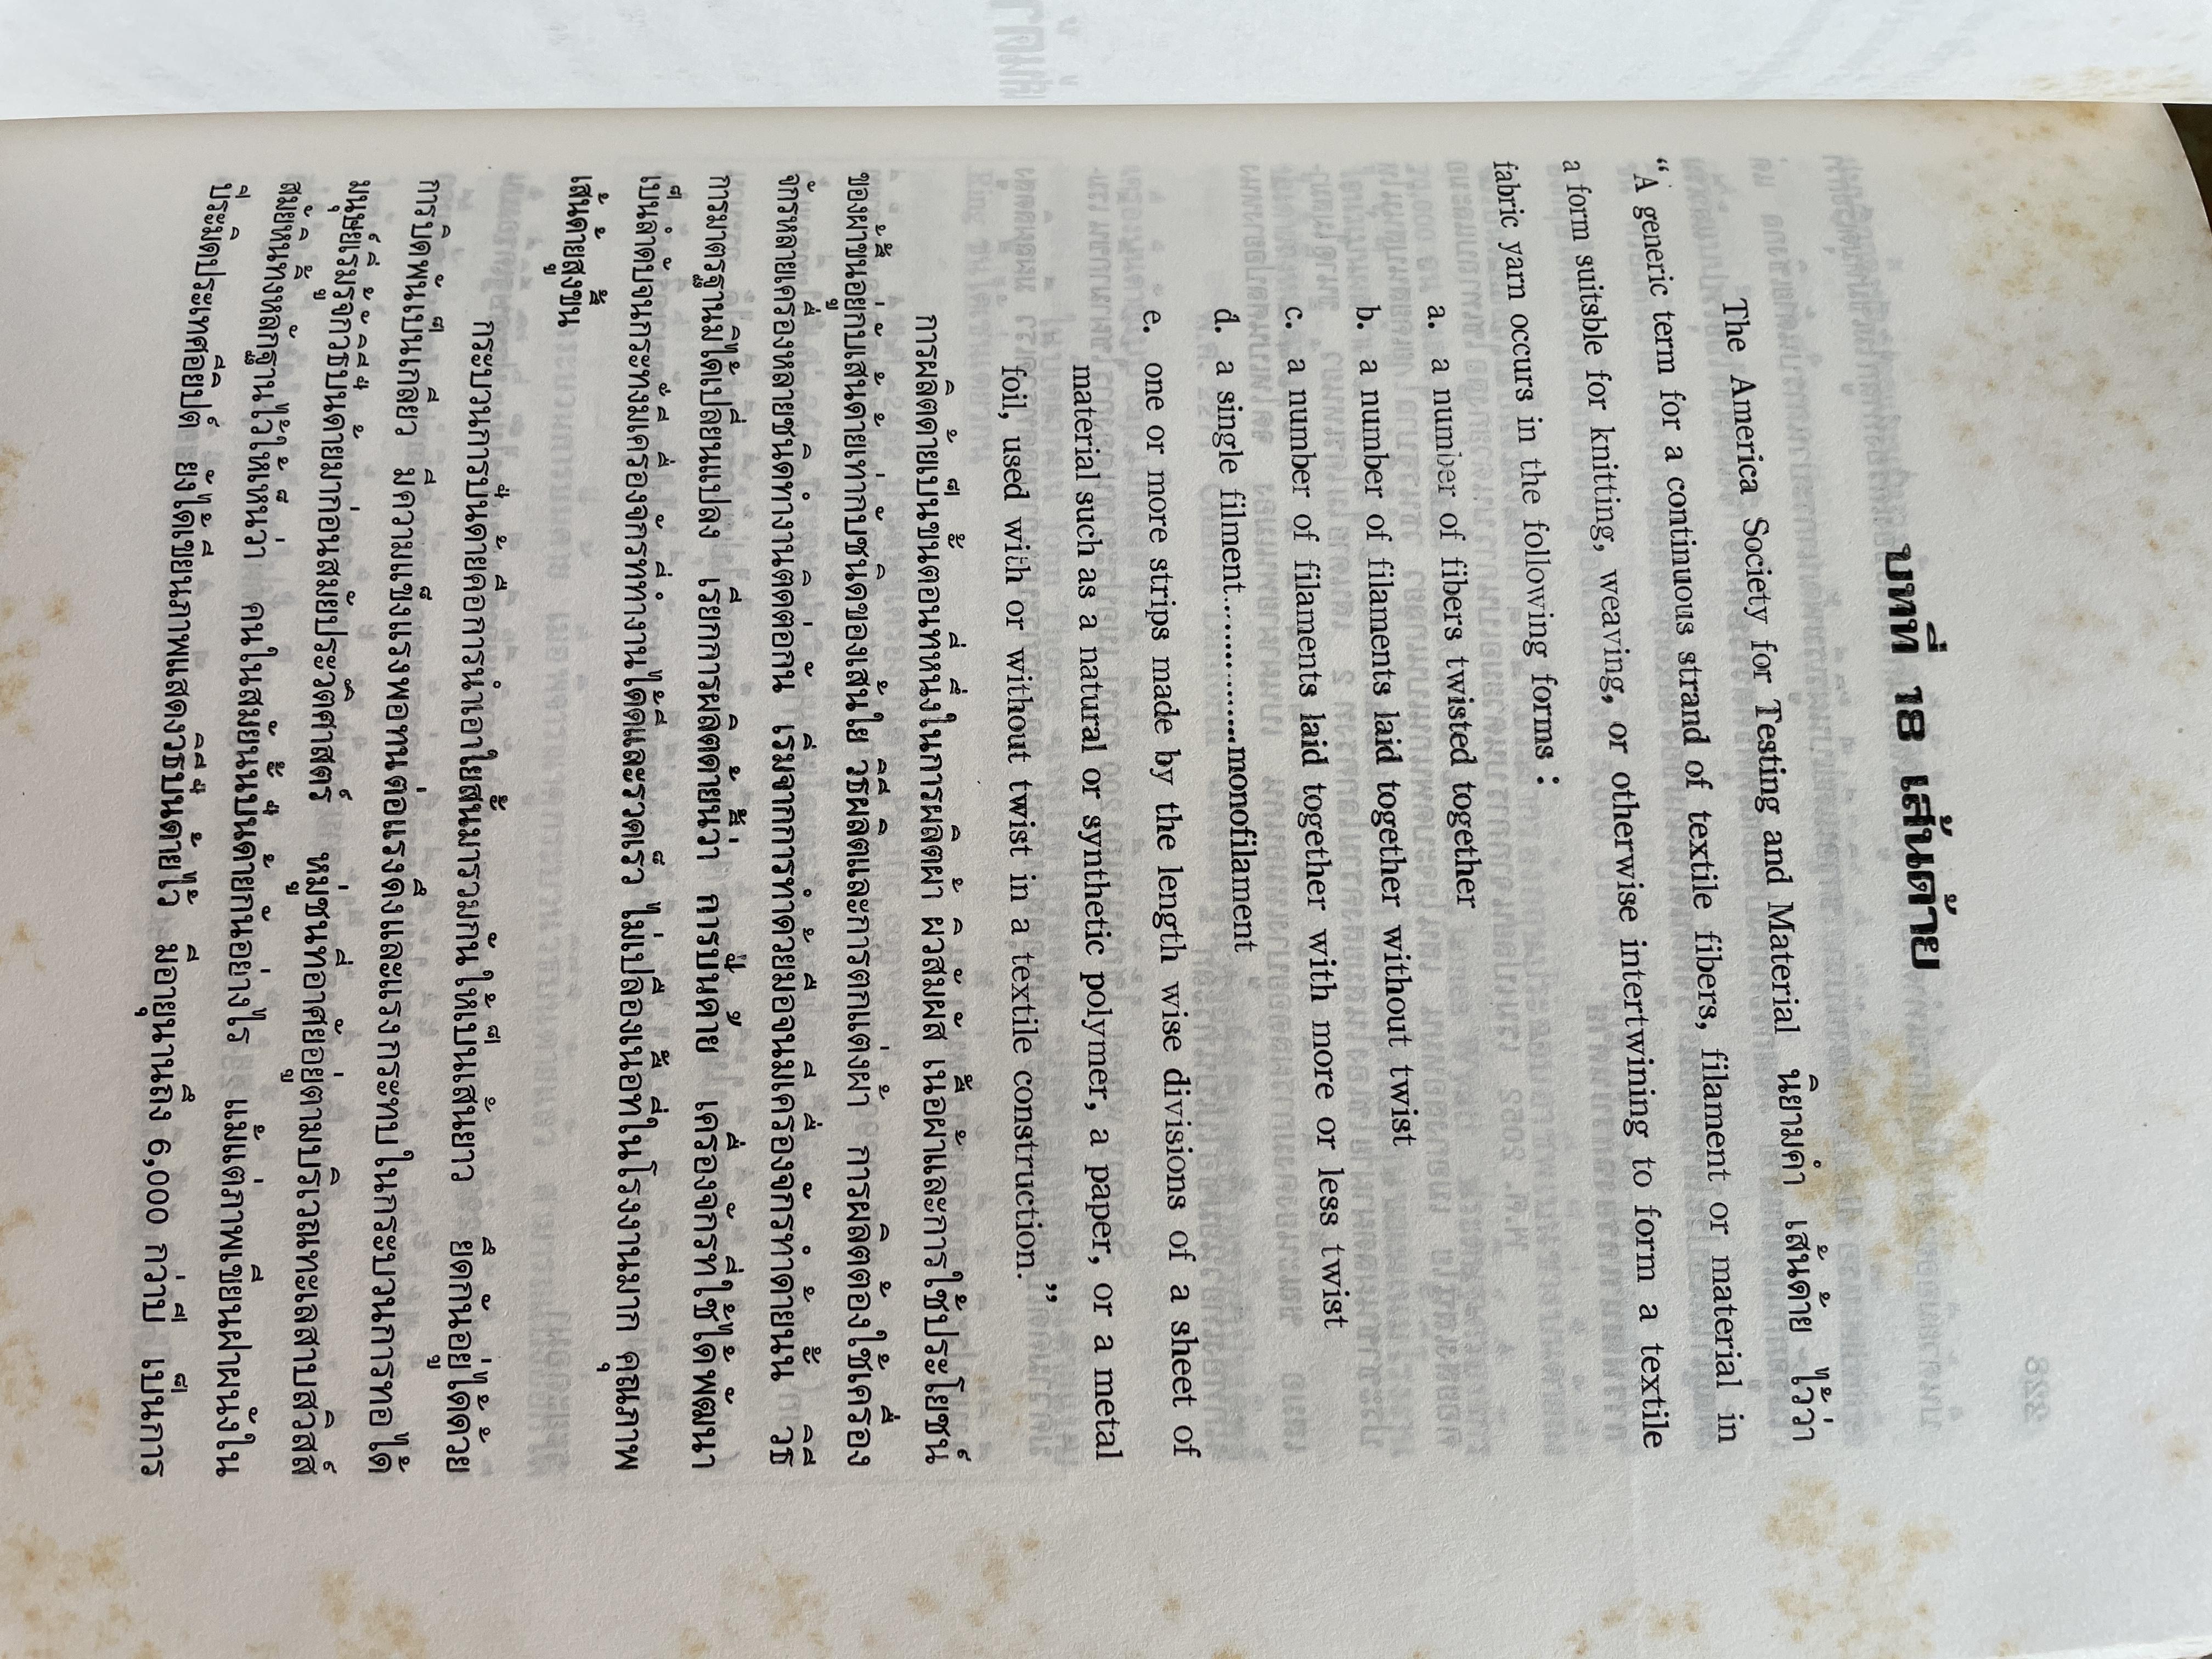 บทที่ 18 เส้นด้าย
The America Society for Testing and Material นิยามคำ เส้นด้าย ไว้ว่า
“A generic term for a continuous strand of textile fibers, filament or material in
a form suitsble for knitting, weaving, or otherwise intertwining to form a textile
fabric yarn occurs in the following forms :
a. a number of fibers twisted together
b. a number of filaments laid together without twist
c. a number of filaments laid together with more or less twist
d. a single filment....................monofilament
e. one or more strips made by the length wise divisions of a sheet of
material such as a natural or synthetic polymer, a paper, or a metal
foil, used with or without twist in a textile construction. ”
การผลิตด้ายเป็นขั้นตอนที่หนึ่งในการผลิตผ้า ผิวสัมผัส เนื้อผ้าและการใช้ประโยชน์
ของผ้าขึ้นอยู่กับเส้นด้ายเท่ากับชนิดของเส้นใย วิธีผลิตและการตกแต่งผ้า การผลิตต้องใช้เครื่อง
จักรหลายเครื่องหลายชนิดทำงานติดต่อกัน เริ่มจากการทำด้วยมือจนมีเครื่องจักรทำด้ายนั้น วิธี
การมาตรฐานมิได้เปลี่ยนแปลง เรียกการผลิตด้ายนี้ว่า การปั่นด้าย เครื่องจักรที่ใช้ได้พัฒนา
เป็นลำดับจนกระทั่งมีเครื่องจักรที่ทำงานได้ดีและรวดเร็ว ไม่เปลืองเนื้อที่ในโรงงานมาก คุณภาพ
เส้นด้ายสูงขึ้น
กระบวนการปั่นด้ายคือการนำเอาใยสั้นมารวมกัน ให้เป็นเส้นยาว ยึดกันอยู่ได้ด้วย
การบิดพันเป็นเกลียว มีความแข็งแรงพอทนต่อแรงดึงและแรงกระทบ ในกระบวนการทอ ได้
มนุษย์เริ่มรู้จักวิธีปั่นด้ายมาก่อนสมัยประวัติศาสตร์ หมู่ชนที่อาศัยอยู่ตามบริเวณทะเลสาบสวิสส์
สมัยหินทิ้งหลักฐานไว้ให้เห็นว่า คนในสมัยนั้นปั่นด้ายกันอย่างไร แม้แต่ภาพเขียนฝาผนังใน
ปิระมิดประเทศอียิปต์ ยังได้เขียนภาพแสดงวิธีปั่นด้ายไว้ มีอายุนานถึง 6,000 กว่าปี เป็นการ